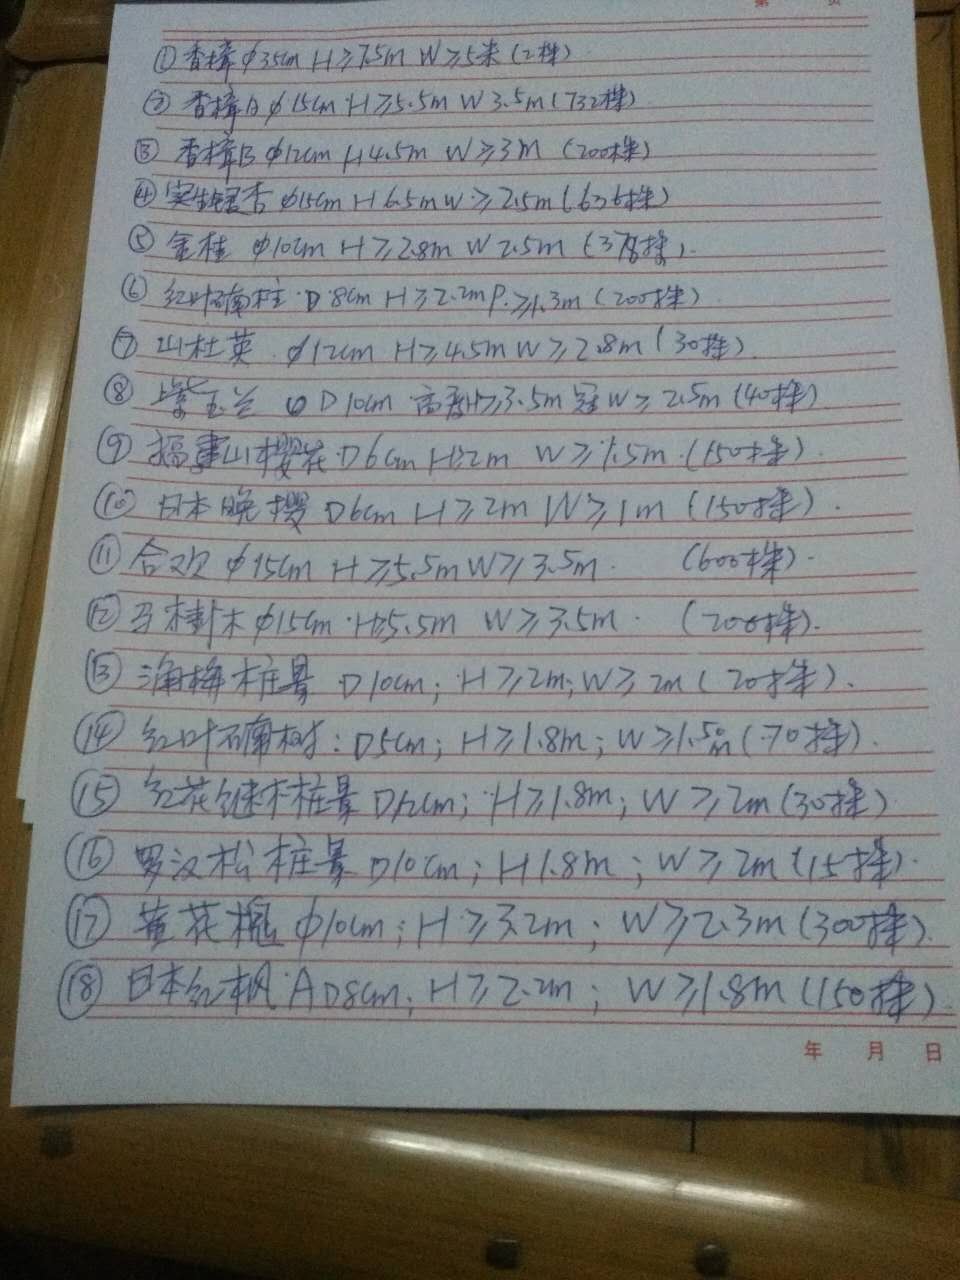 第 页
①香樟 φ35cm H≥7.5m W≥5米(2株)
② 香樟A φ15cm H≥5.5m W3.5m(732株)
③ 香樟B φ12cm H4.5m W≥3m (200株)
④实生银杏 φ15cm H6.5m W≥2.5m(636株)
⑤ 金桂 φ10cm H≥2.8m W2.5m (3株).
⑥ 红叶石楠柱.D.8cm H≥2.2m P.≥1.3m(200株).
⑦ 山杜英. φ12cm H≥4.5m W≥2.8m(30株).
⑧ 紫玉兰 φD10cm 高度H≥3.5m冠W≥2.5m(40株)
⑨ 福建山樱花.D6cm H≥2m W≥1.5m.(150株).
⑩ 日本晚樱 D6cm H≥2m W≥1m (150株).
⑪ 合欢 φ15cm H≥5.5m W≥3.5m. (600株).
⑫ 马褂木 φ15cm H≥5.5m W≥3.5m. (200株).
⑬ 海梅桩景 D10cm; H≥2m; W≥2m(20株).
⑭ 红叶石楠树: D5cm; H≥1.8m; W≥1.50m(70株).
⑮ 红花继木桩景 D12cm; H≥1.8m; W≥2m(30株)
⑯ 罗汉松桩景 D10cm; H1.8m; W≥2m(15株).
⑰ 黄花槐 φ10cm; H≥3.2m; W≥2.3m(300株).
⑱ 日本红枫.A D8cm. H≥2.2m; W≥1.8m(150株).
年 月 日